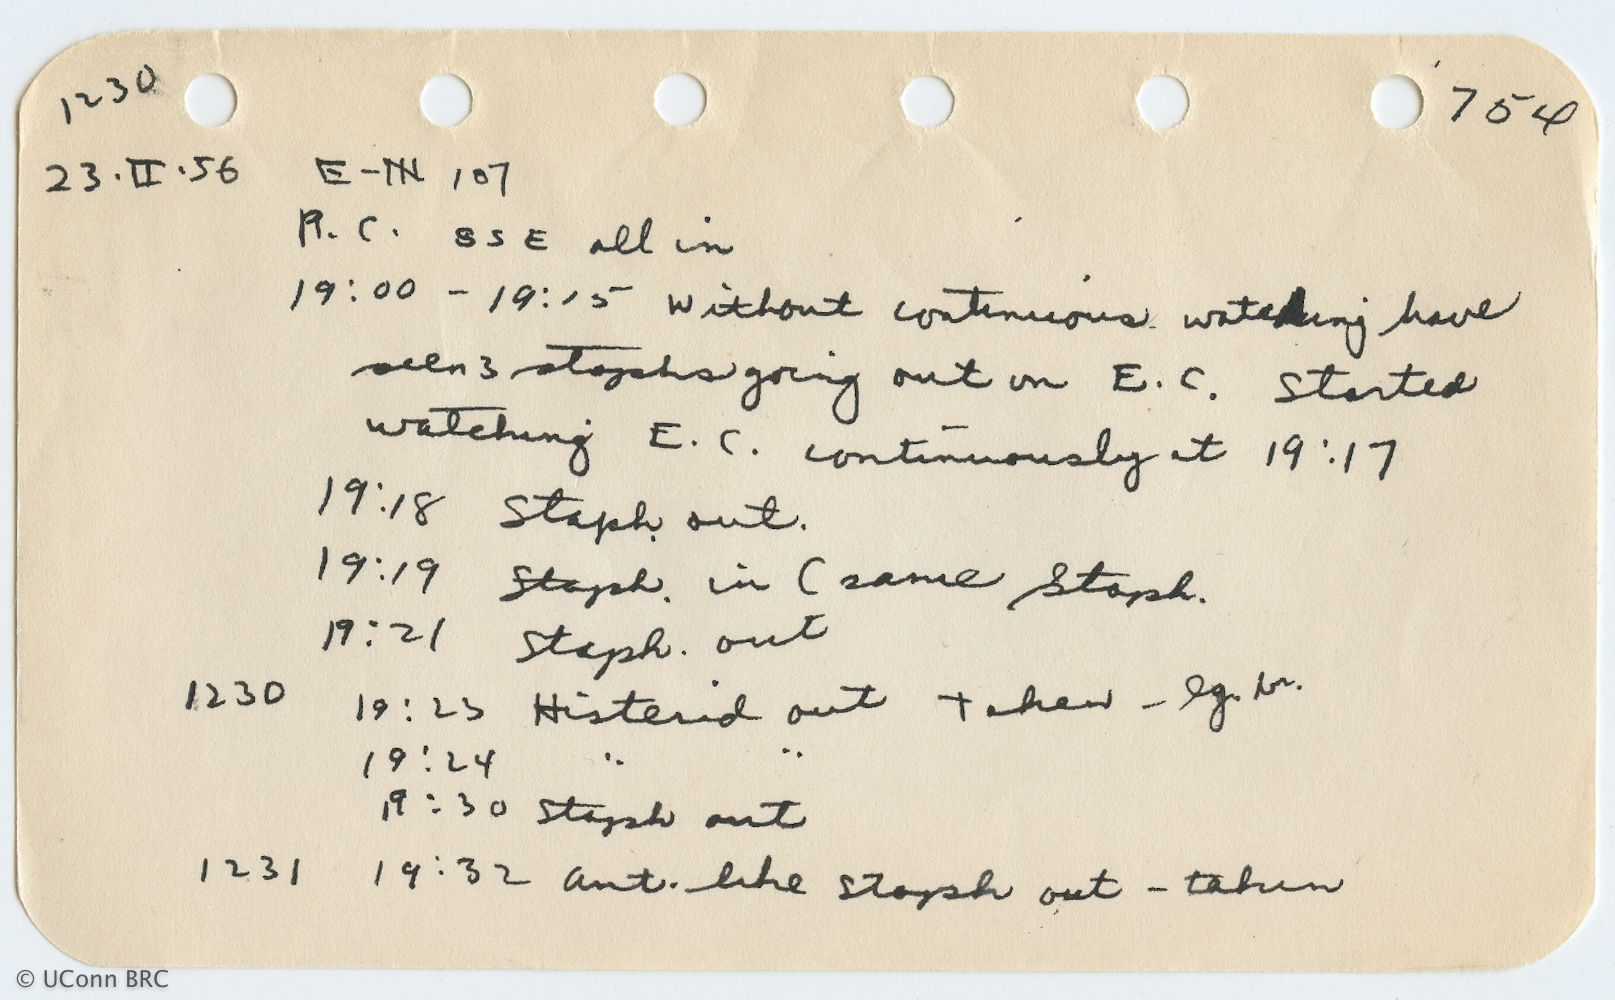 1230
754
23.II.56 E-IN 107
R.C. SSE all in
19:00 - 19:15 Without continuous watching have
seen 3 staphs going out on E.C. Started
watching E.C. continuously at 19:17
19:18 Staph. out.
19:19 Staph. in (same Staph.
19:21 Staph. out
1230 19:23 Histerid out Taken - lg. br.
19:24 " "
19:30 Staph out
1231 19:32 ant-like staph out - taken
© UConn BRC